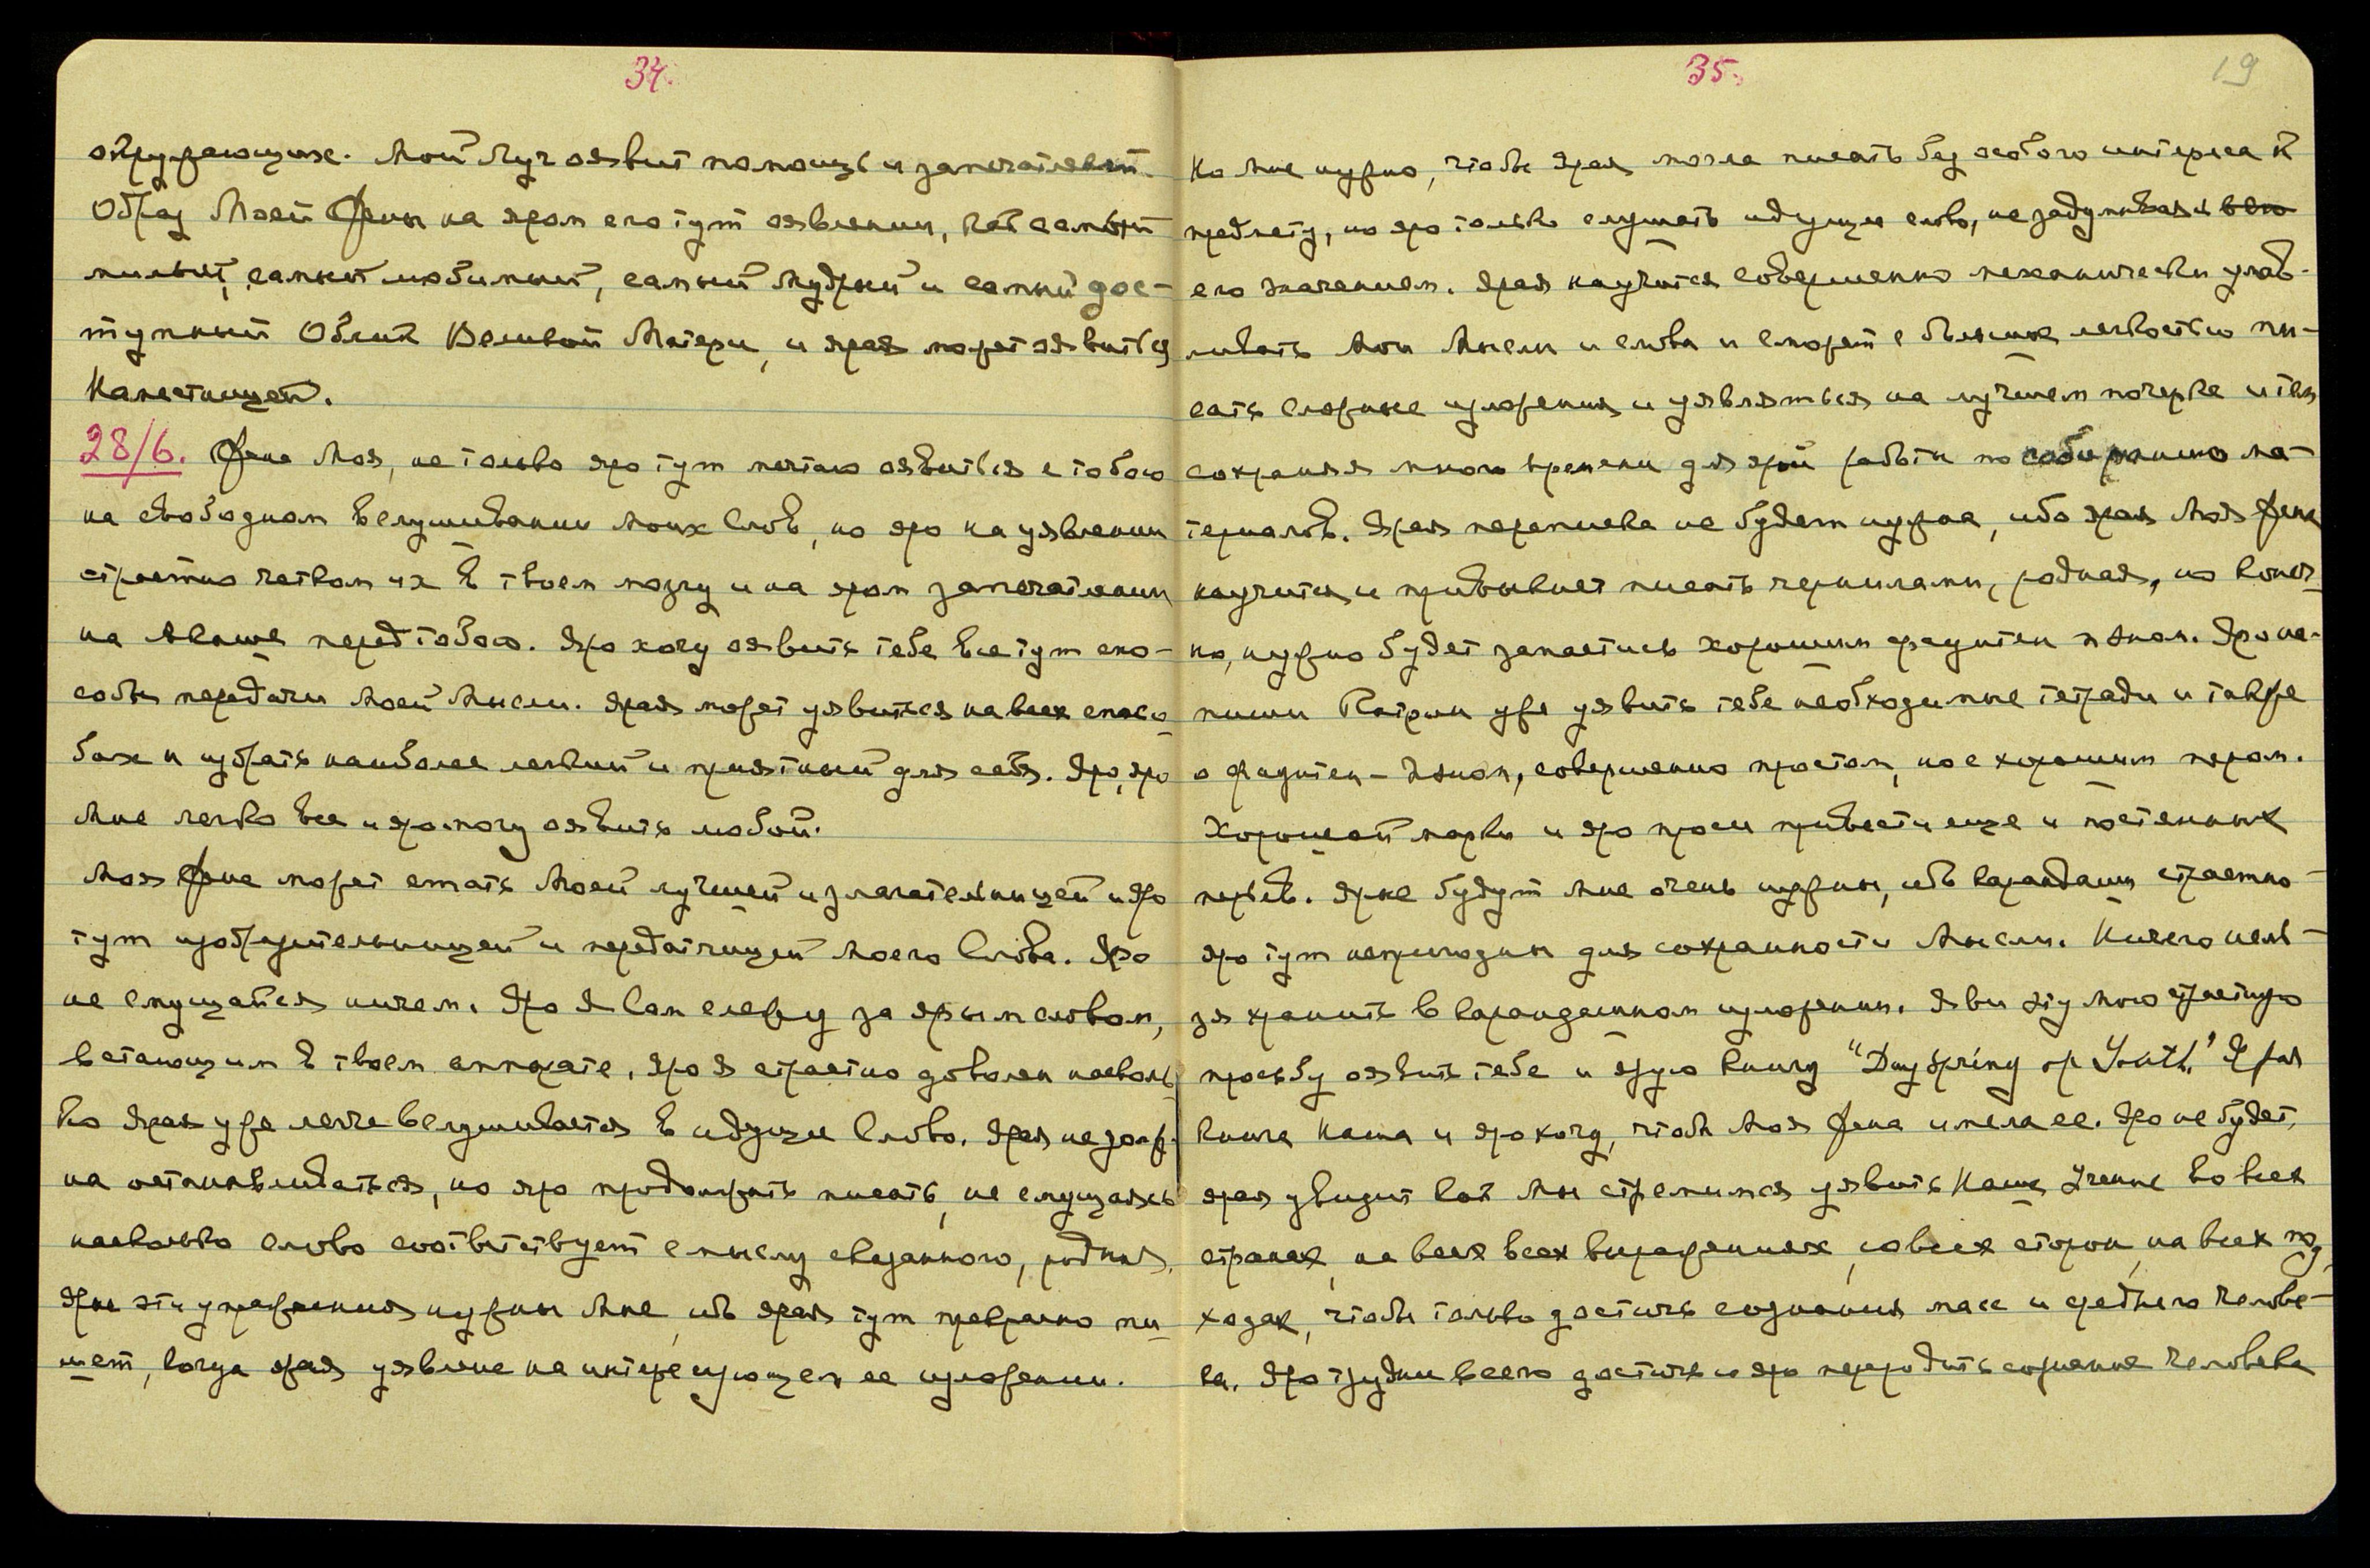 34.
окружающих. Мой Луч оявит помощь и запечатлевает
Образ Моей Жены на яром его тут оявлении, как самый
милый, самый любимый, самый Мудрый и самый дос-
тупный Облик Великой Матери, и ярая может оявиться
Наместницей.
28/6. Жена Моя, не только яро тут мечтаю оявиться с тобою
на свободном вслушивании Моих Слов, но яро на уявлении
страстно четком их в твоем мозгу и на яром запечатлении
на Акаше перед тобою. Яро хочу оявить тебе все тут спо-
собы передачи Моей Мысли. Ярая может уявиться на всех спосо-
бах и избрать наиболее легкий и приятный для себя. Яро, яро
Мне легко все и яро могу оявить любой.
Моя Жена может стать Моей лучшей изла­гательницей и яро
тут изобразительницей и передатчицей Моего Слова. Яро
не смущайся ничем. Яро Я Сам слежу за ярым словом,
встающим в твоем аппарате. Яро Я страстно доволен насколь-
ко ярая уже легче вслушивается в идущее Слово. Ярая не долж-
на останавливаться, но яро продолжать писать, не смущаясь
насколько слово соответствует смыслу сказанного, родная.
Ярые эти упражнения нужны Мне, ибо ярая тут прекрасно пи-
шет, когда ярая уявлена на интересующем ее изложении.
35.
19
Но Мне нужно, чтобы ярая могла писать без особого интереса к
предмету, но яро только слушать идущее слово, не задумываясь над
его значением. Ярая научится совершенно механически улав-
ливать Мои Мысли и слова и сможет с большею легкостью пи-
сать сложные изложения и уявляться на лучшем почерке и тем
сохраняя много времени для ярой работы по собиранию ма-
териалов. Ярая переписка не будет нужна, ибо ярая Моя Жена
научится и привыкнет писать чернилами, родная, но конеч-
но, нужно будет запастись хорошим фаунтен пэном. Яро на-
пиши Катрин уже уявить тебе необходимые тетради и также
о фаунтен-пэном, совершенно простом, но с хорошим пером.
Хорошей марки и яро проси привезти еще и постоянных
перьев. Ярые будут Мне очень нужны, ибо карандаши страстно
яро тут непригодны для сохранности Мысли. Ничего нель-
зя хранить в карандашном изложении. Яви эту Мою страстную
просьбу оявить тебе и ярую книгу "Dayspring of Youth". Ярая
книга Наша и яро хочу, чтобы Моя Жена имела ее. Яро не будет,
ярая увидит как Мы стремимся уявить Наше Учение во всех
странах, на всех всех выражениях, со всех сторон, на всех под-
ходах, чтобы только достичь сознания масс и среднего челове-
ка. Яро труднее всего достичь и яро переродить сознание человека